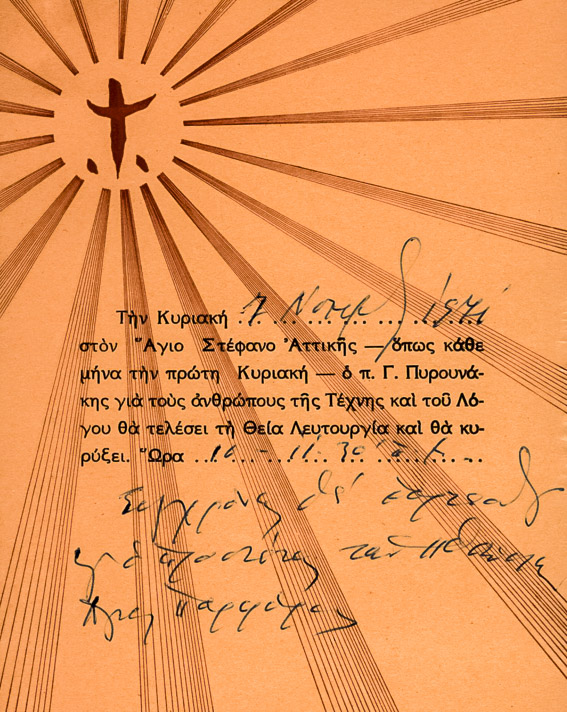 Τὴν Κυριακή 7 Νοεμβ 1971
στὸν Ἅγιο Στέφανο Ἀττικῆς — ὅπως κάθε
μήνα τὴν πρώτη Κυριακή — ὁ π. Γ. Πυρουνά-
κης γιὰ τοὺς ἀνθρώπους τῆς Τέχνης καὶ τοῦ Λό-
γου θὰ τελέσει τὴ Θεία Λευτουργία καὶ θὰ κυ-
ρύξει. Ὥρα 10 - 11.30
Συγχρόνως θὰ
Ἁγίας Βαρβάρας